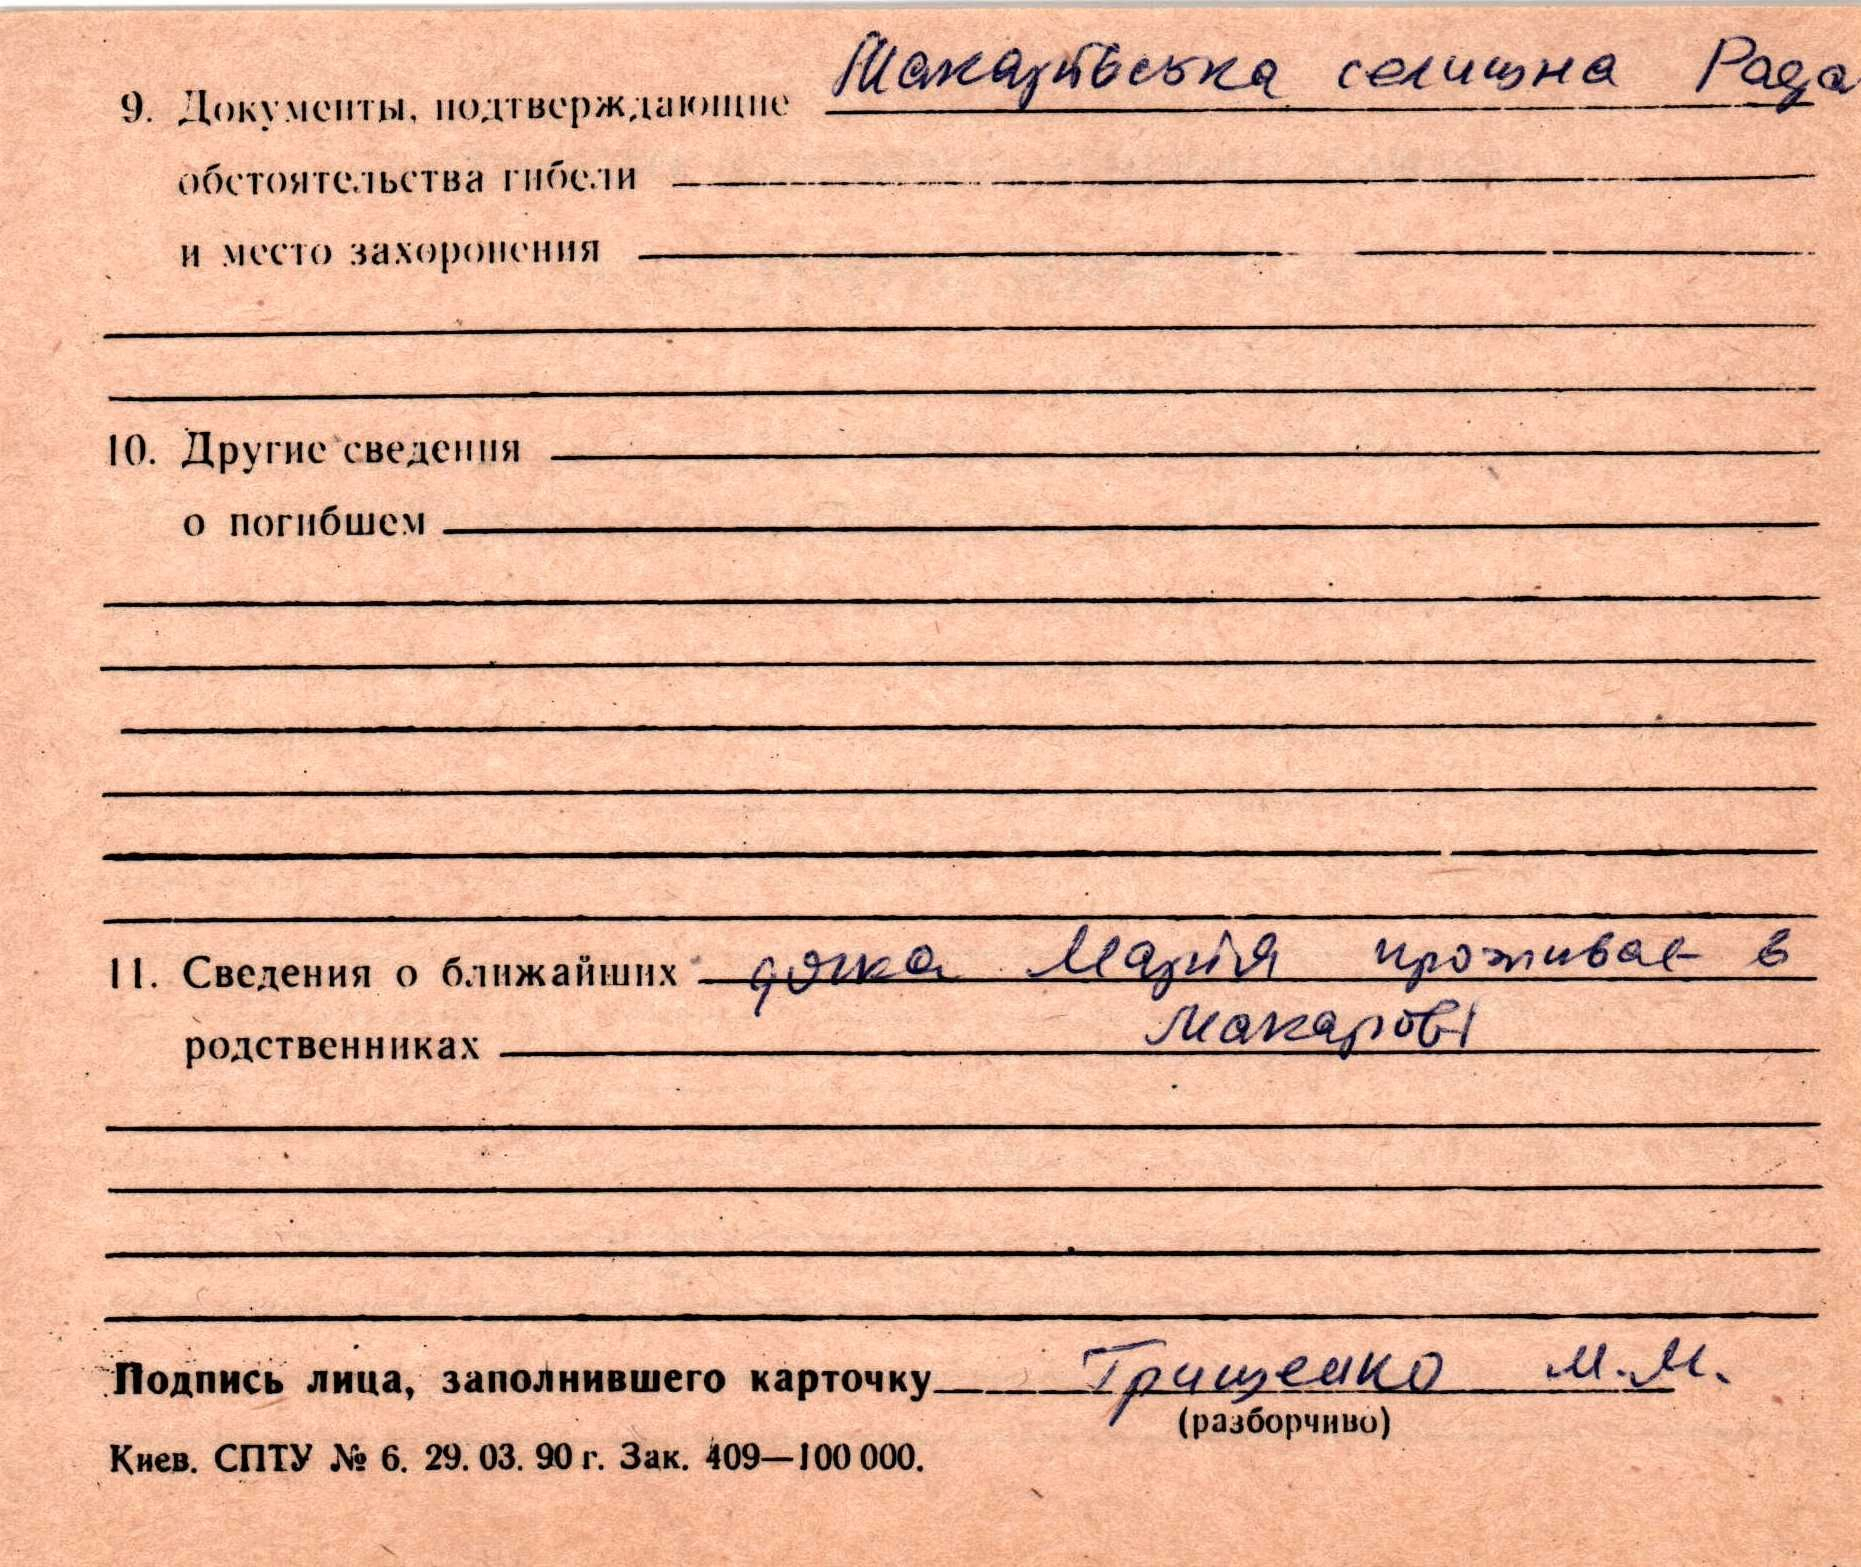 9. Документы, подтверждающие Макарівська селищна Рада
обстоятельства гибели
и место захоронения
10. Другие сведения
о погибшем
11. Сведения о ближайших дочка Марія проживає в
родственниках Макарові
Подпись лица, заполнившего карточку Грищенко М.М.
(разборчиво)
Киев. СПТУ № 6. 29. 03. 90 г. Зак. 409—100 000.